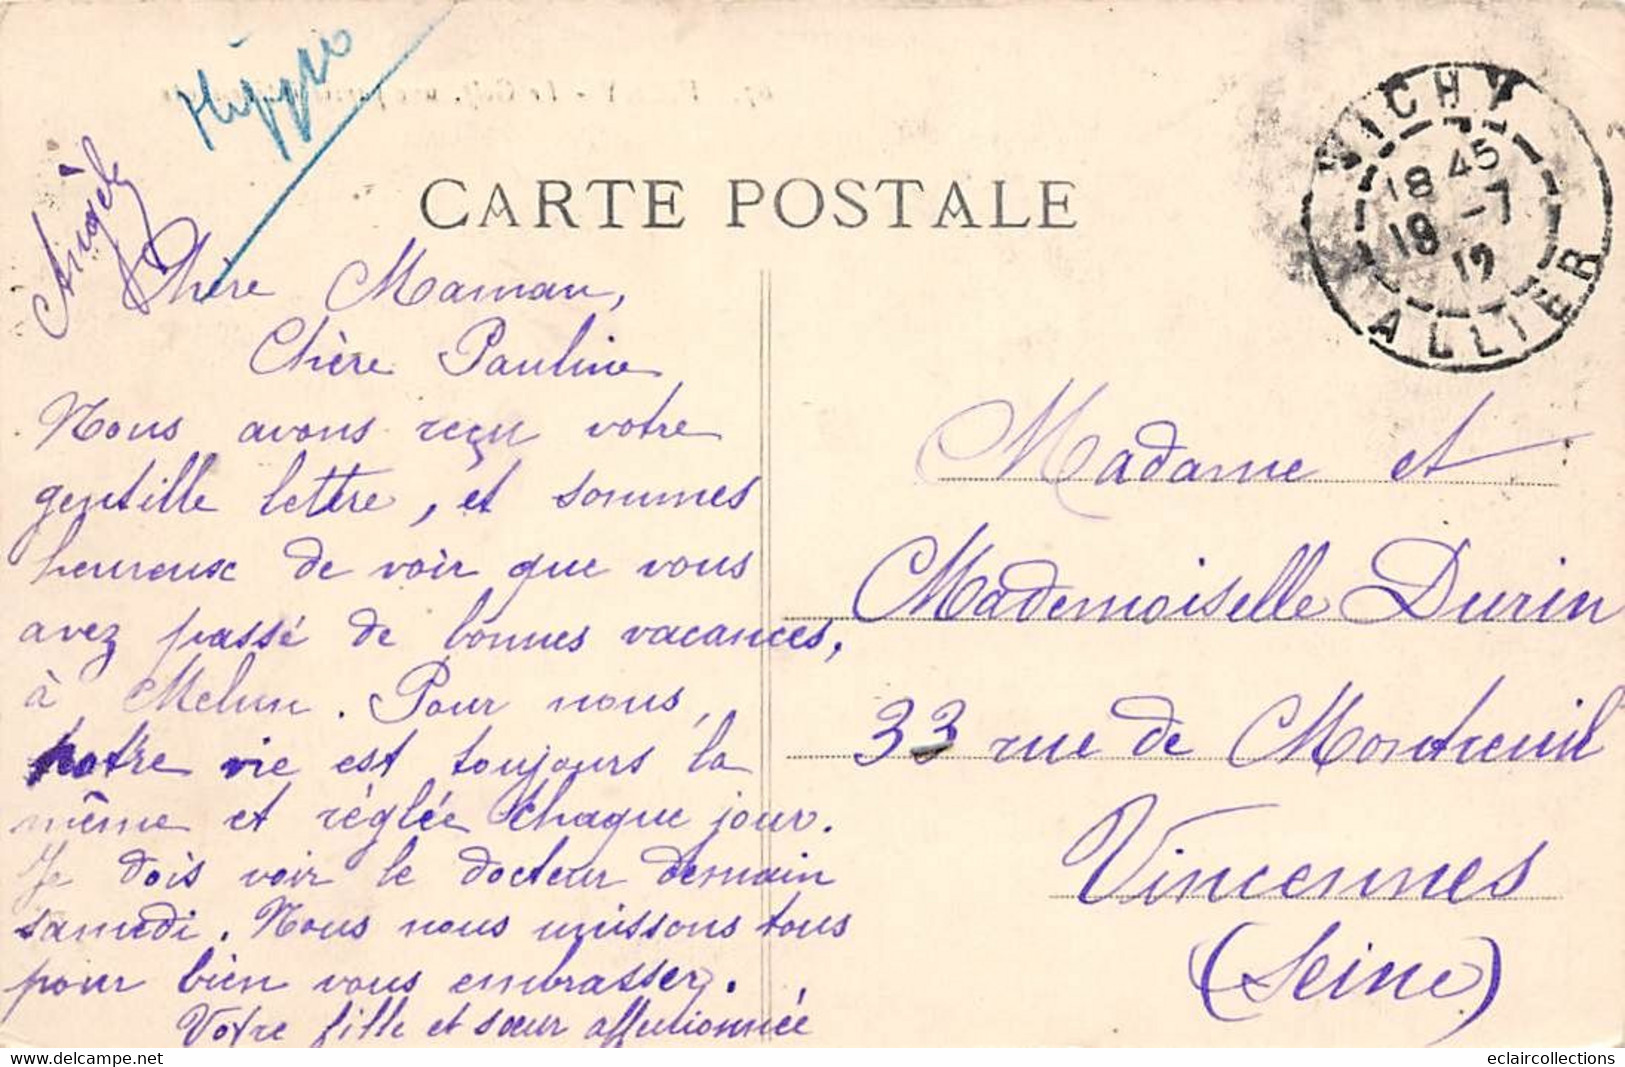 Hippo
Angèle
CARTE POSTALE
VICHY
18 45
19 -7
12
ALLIER
Chère Maman,
Chère Pauline
Nous avons reçu votre
gentille lettre, et sommes
heureuse de voir que vous
avez passé de bonnes vacances,
à Melun. Pour nous,
notre vie est toujours la
même et réglée chaque jour.
Je dois voir le docteur demain
samedi. Nous nous unissons tous
pour bien vous embrasser.
Votre fille et sœur affectionnée
Madame et
Mademoiselle Durin
33 rue de Montreuil
Vincennes
(Seine)
eclaircollections